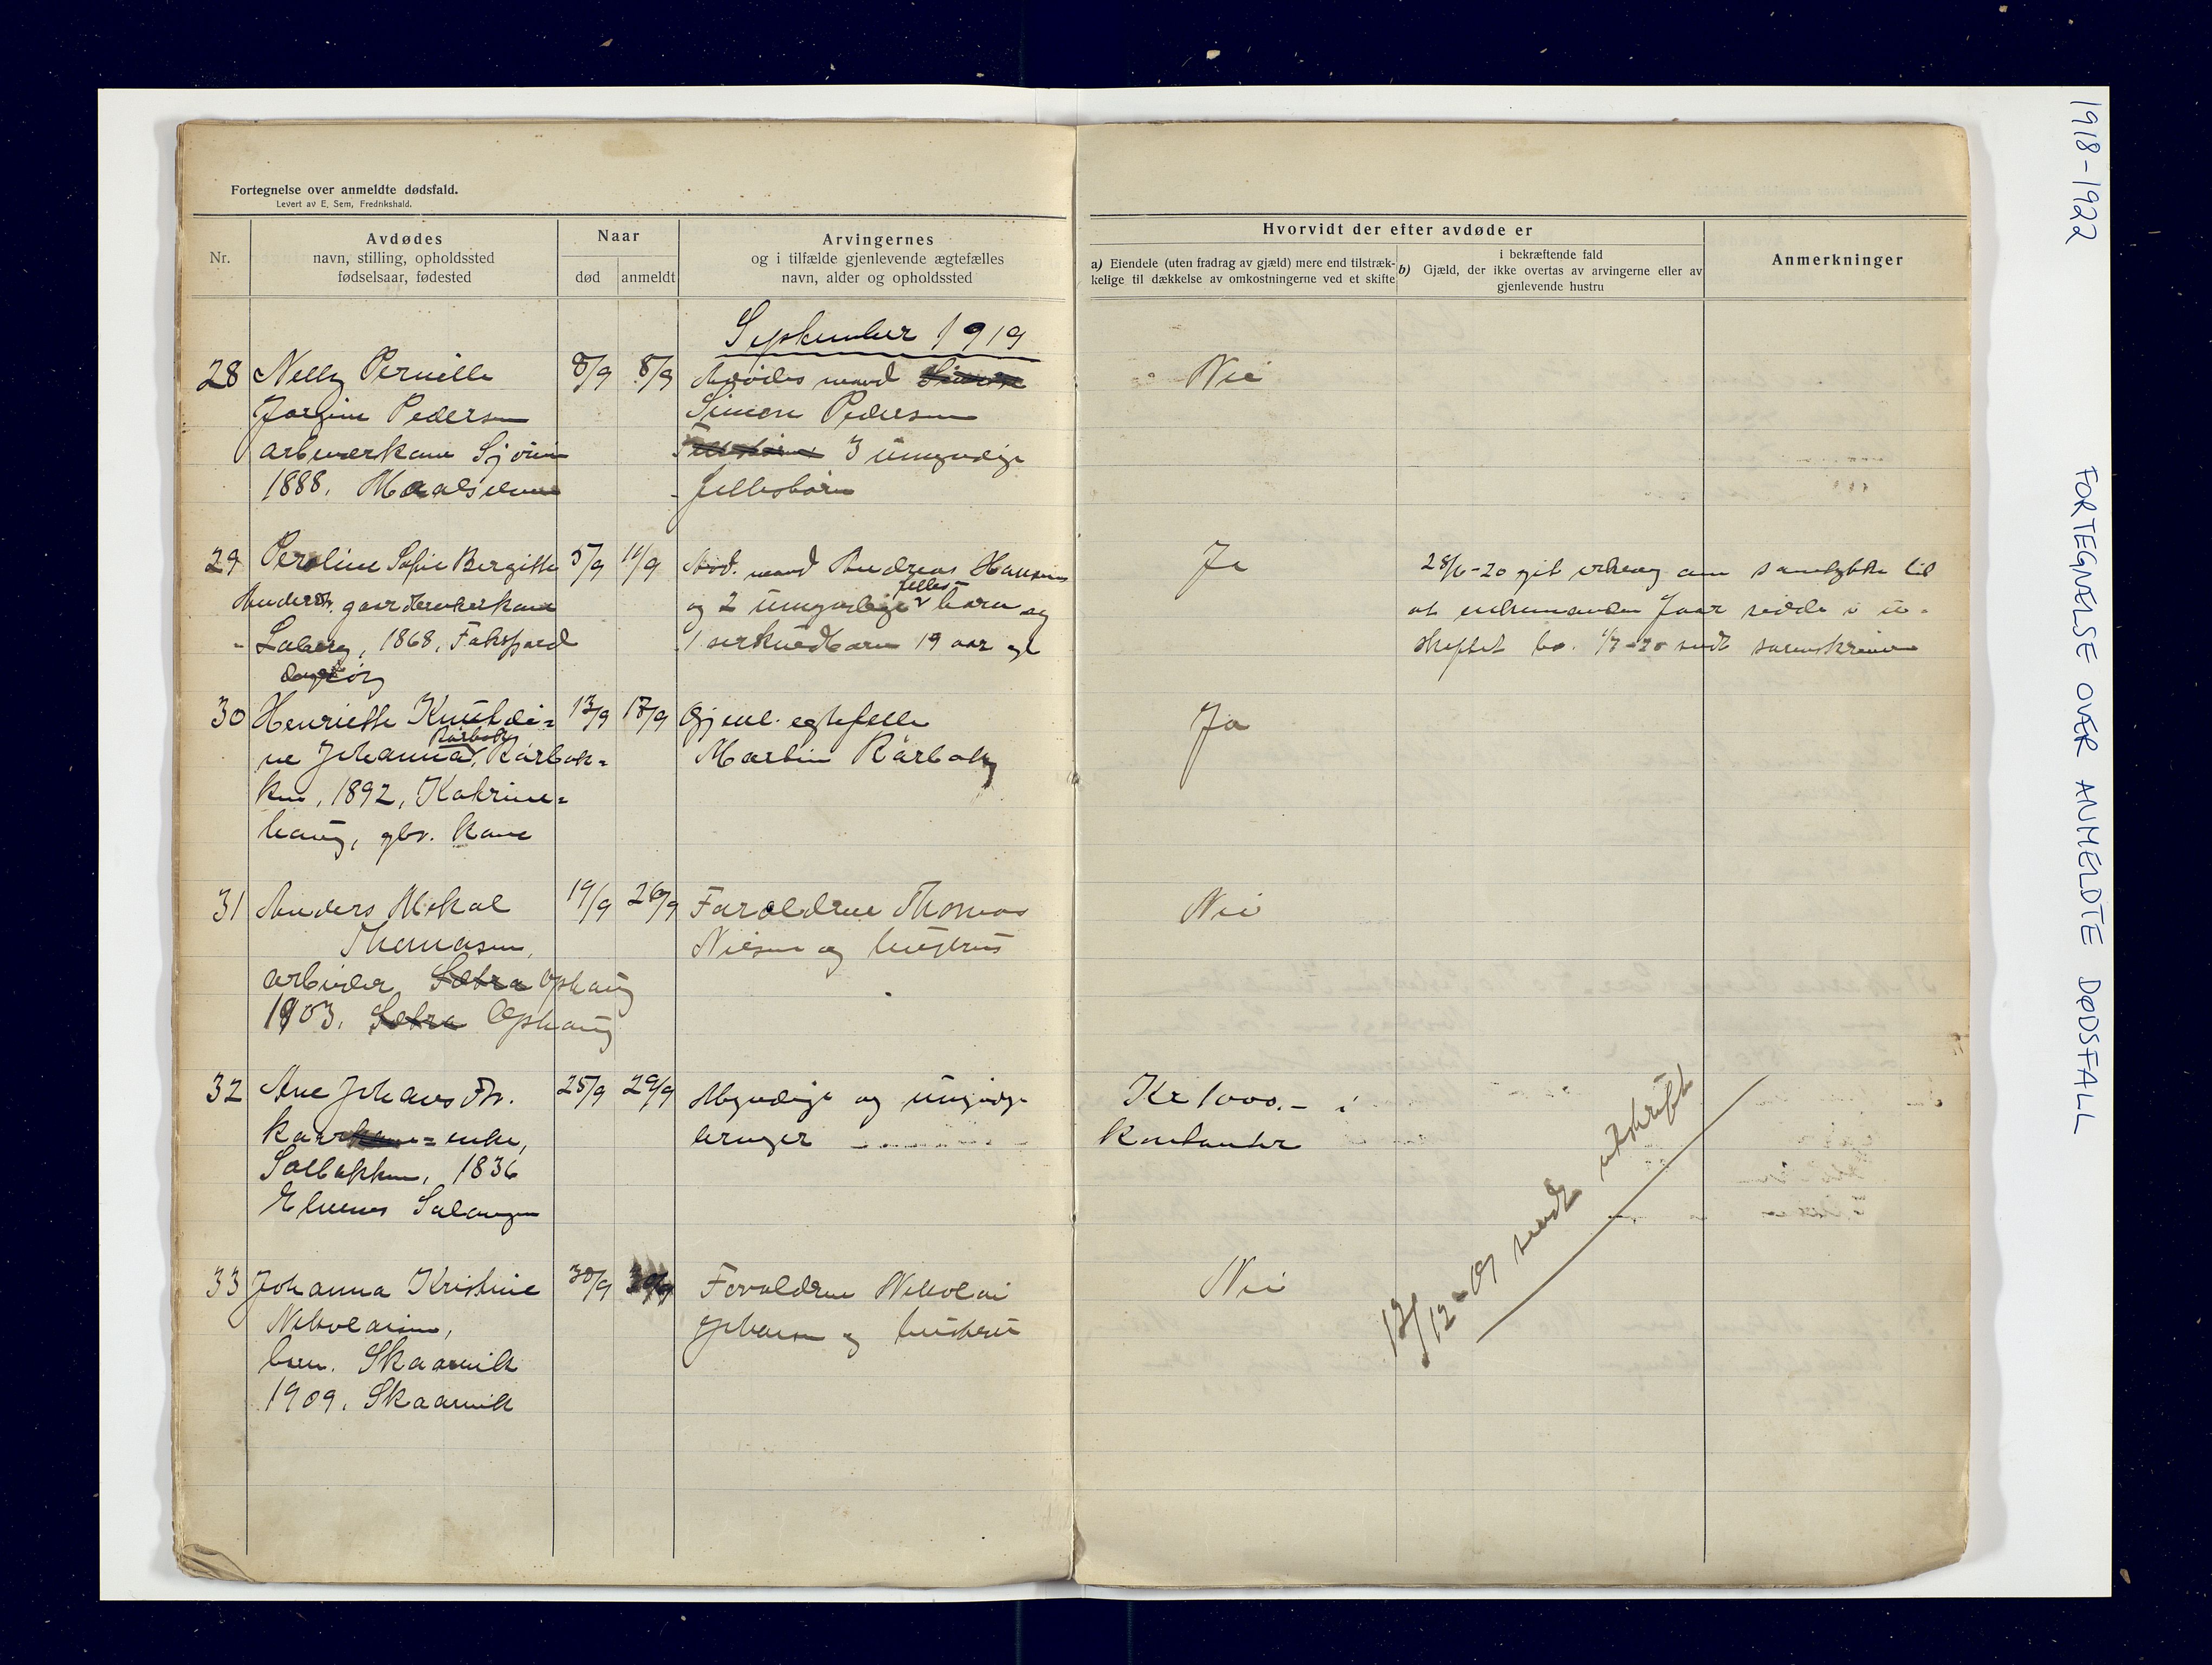 Fortegnelse over anmeldte dødsfald.
Levert av E. Sem, Fredrikshald.
Nr.
Avdødes
navn, stilling, opholdssted
fødselsaar, fødested
Naar
død
anmeldt
Arvingernes
og i tilfælde gjenlevende ægtefælles
navn, alder og opholdssted
Hvorvidt der efter avdøde er
a) Eiendele (uten fradrag av gjæld) mere end tilstræk-
kelige til dækkelse av omkostningerne ved et skifte
i bekræftende fald
b) Gjæld, der ikke overtas av arvingerne eller av
gjenlevende hustru
Anmerkninger
September 1919
28 Nelly Pernille 8/9 8/9 Avdødes mand
Jorgine Pedersen Simon Pedersen
3 umyndige
1888. Maalselven fellesbarn
Nei
29 Peroline Sofie Bergitte 5/9 11/9 Avd. mand Andreas Hansen
og 2 umyndige felles barn og
Laberg, 1868, 1 serkuldbarn 19 aar gl
Ja
28/6-20 git erklæring om samtykke til
at enkemanden faar sidde i u-
skiftet bo. 1/7-20 sendt sorenskriveren
30 Henriette Knutdi- 13/9 17/9 Gjenl. egtefelle
ne Johanna Rørbakk, Rørbak- Martin Rørbakk
ken, 1892, Katrine-
haug, gbr. kone
Ja
31 Anders Mikal 19/9 26/9 Foreldrene Thomas
Thomassen, Nilsen og hustru
arbeider Sætra Ophaug
1903. Sætra Ophaug
Nei
32 Ane Johans Dtr. 25/9 29/9 Myndige og umyndige
kaarkone-enke, arvinger
Solbakken, 1836
Elvenes Salangen
Kr 1000.- i
kontanter
12/12-19 sendt utskrift
33 Johanna Kristine 30/9 30/9 Foreldrene Nikolai
Nikolaisen, Johansen og hustru
barn. Skaarvik
1909. Skaarvik
Nei
1918-1922 FORTEGNELSE OVER ANMELDTE DØDSFALL